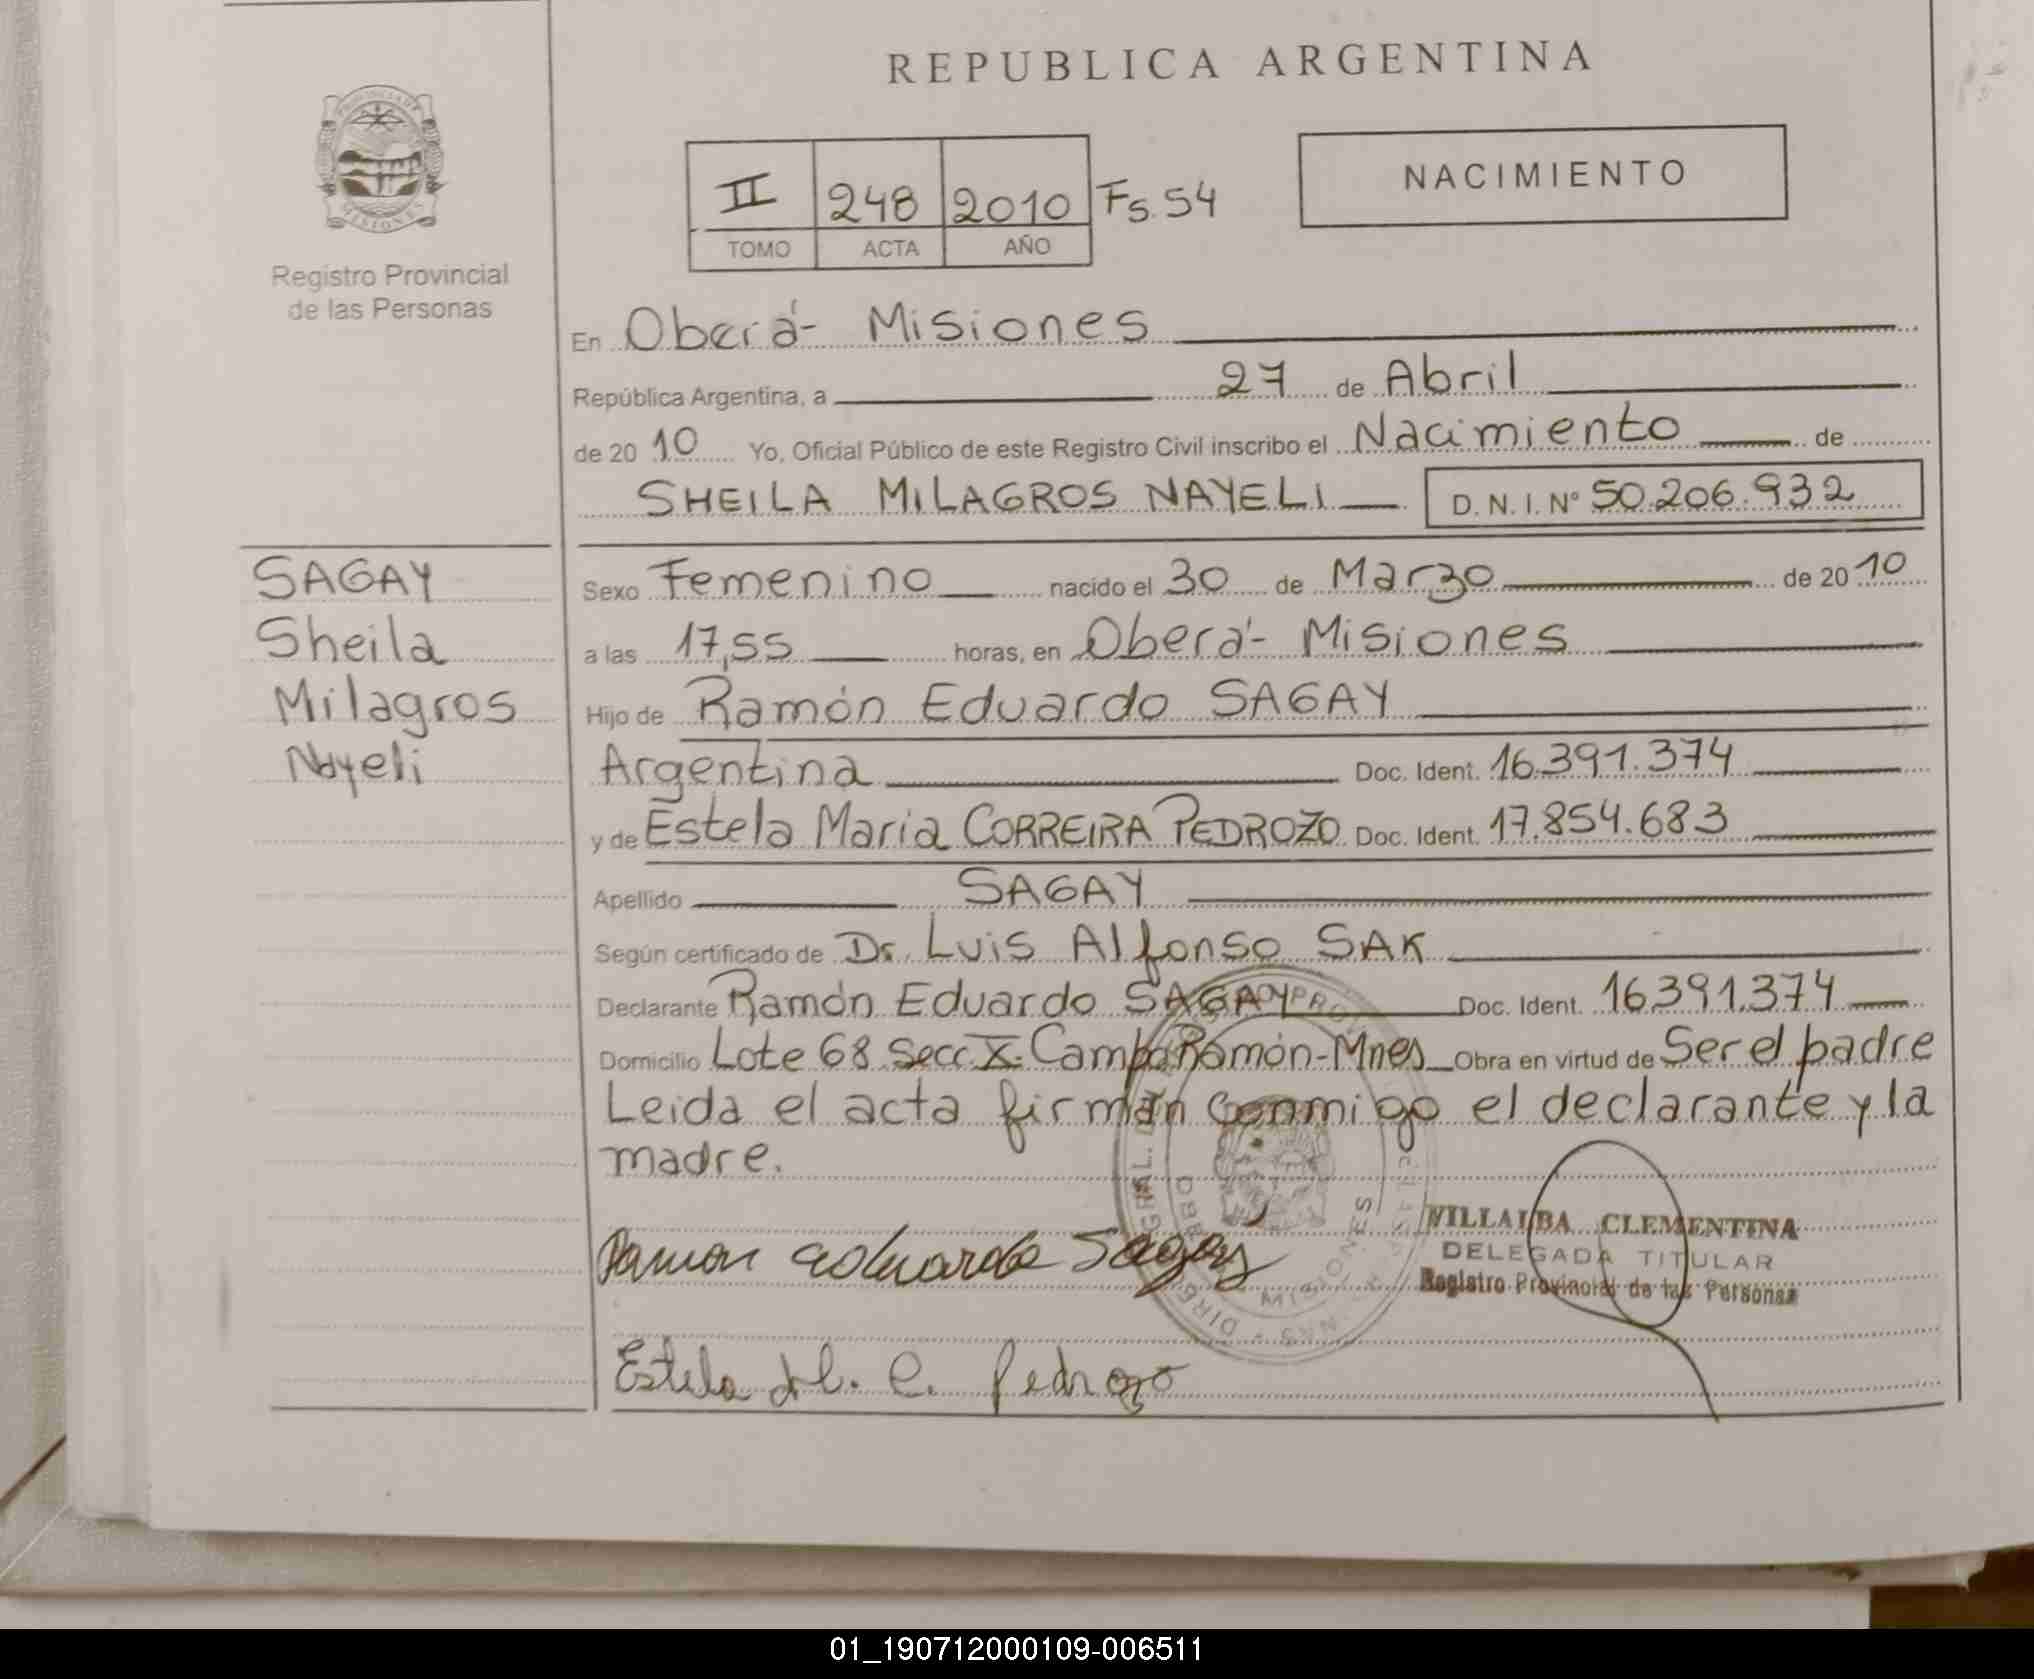 REPUBLICA ARGENTINA
PROVINCIA DE
MISIONES
Registro Provincial
de las Personas
II 248 2010 Fs. 54
TOMO ACTA AÑO
NACIMIENTO
En Oberá - Misiones
República Argentina, a 27 de Abril
de 2010 Yo, Oficial Público de este Registro Civil inscribo el Nacimiento de
SHEILA MILAGROS NAYELI D. N. I. Nº 50.206.932
SAGAY
Sheila
Milagros
Nayeli
Sexo Femenino nacido el 30 de Marzo de 2010
a las 17,55 horas, en Oberá - Misiones
Hijo de Ramón Eduardo SAGAY
Argentina Doc. Ident. 16.391.374
y de Estela Maria CORREIRA PEDROZO Doc. Ident. 17.854.683
Apellido SAGAY
Según certificado de Dr. Luis Alfonso SAK
Declarante Ramón Eduardo SAGAY Doc. Ident. 16.391.374
Domicilio Lote 68 Secc. X. Campo Ramón - Mnes Obra en virtud de Ser el padre
Leida el acta firman conmigo el declarante y la
madre.
Ramon Eduardo Sagay
VILLALBA CLEMENTINA
DELEGADA TITULAR
Registro Provincial de las Personas
MISIONES
Estela M. C. Pedrozo
01_190712000109-006511